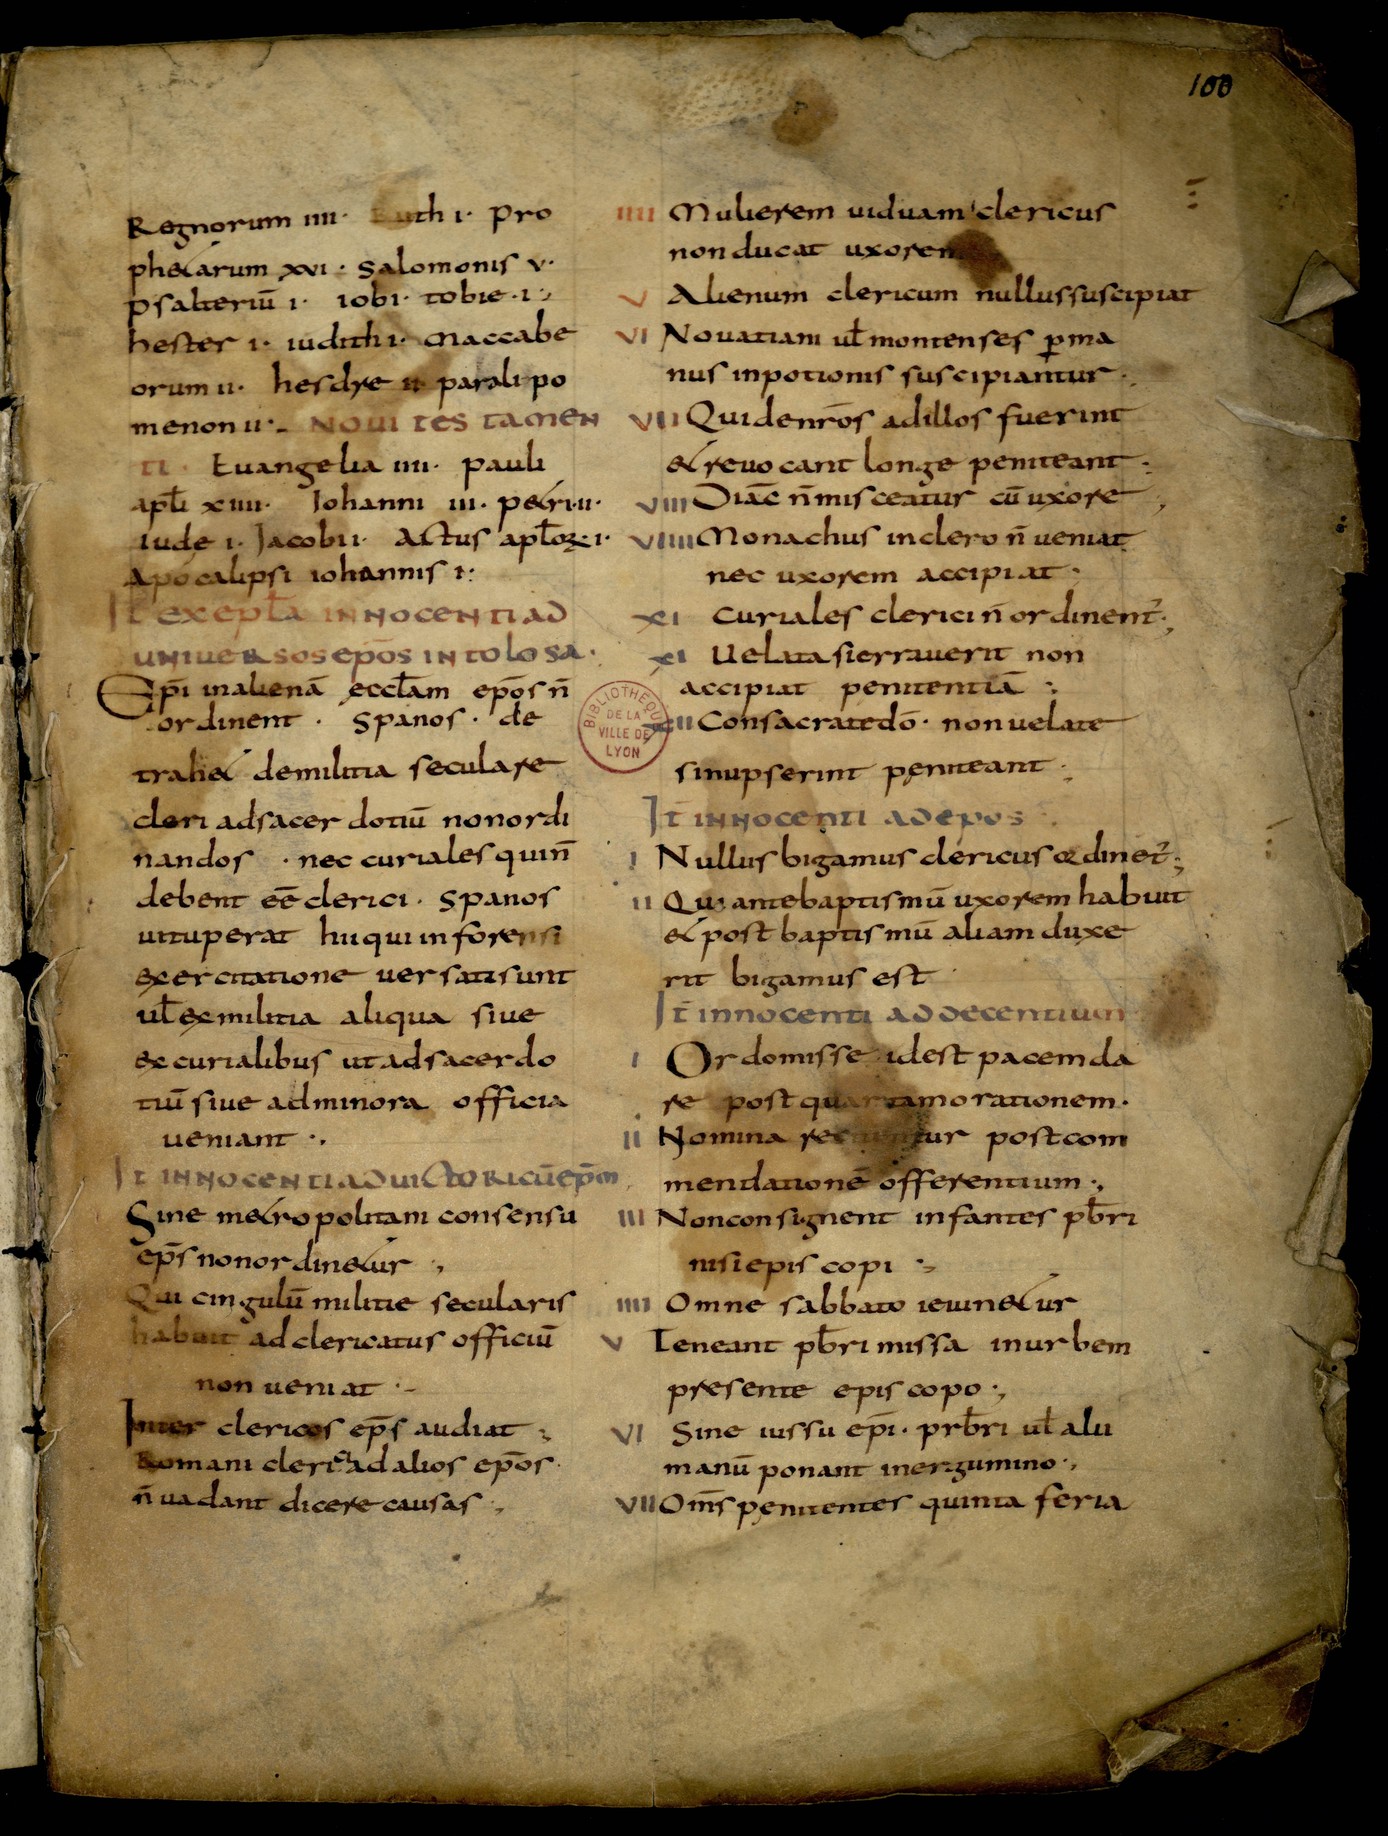 100
Regnorum iiii· Ruth i· Pro
phetarum xvi· Salomonis v·
psalteriū i· iobi· tobie·i·,
hester i· iudith i· Maccabe
orum ii· hesdre ii parali po
menon ii·. NOUI TESTAMEN
TI· Euangelia iiii· pauli
apłi xiiii· Iohanni iii· petri·ii·
iude i· Iacobi i· Actus apłoꝝ·i·
Apocalipsi iohannis i:
IT EX EPŁA INNOCENTI AD
UNIUERSOS EPŌS IN TOLOSA·
Epī in alienā eccłam epōs n̄
ordinent· Spanos· de
trahet de militia seculare
cleri ad sacerdotiū non ordi
nandos· nec curiales qui n̄
debent eē clerici· Spanos
uituperat hii qui in forensi
exercitatione uersati sunt
uł ex militia aliqua siue
ex curialibus ut ad sacerdo
tiū siue ad minora officia
ueniant·,
IT INNOCENTI AD UICTORICŪ EPM̄
Sine metropolitani consensu
ep̄s non ordinetur·,
Qui cingulū militie secularis
habuit ad clericatus officiū
non ueniat·-
Inter clericos ep̄s audiat·,
Romani clerici ad alios epōs·
n̄ uadant dicere causas·,
iiii Mulierem uiduam clericus
non ducat uxorem
v Alienum clericum nullus suscipiat
vi Nouatiani uł montenses ꝑ ma
nus inpotionis suscipiantur·,
vii Qui de nr̄os ad illos fuerint
et reuocant longe peniteant·,
viii Diac̄ n̄ misceatur cū uxore·,
viiii Monachus in clero n̄ ueniat
nec uxorem accipiat·
xi Curiales clerici n̄ ordinent̄·,
xi Uelata si errauerit non
accipiat penitentiā·,
xii Consacrate dō· non uelate
si nupserint peniteant·,
IT̄ INNOCENTI AD EPOS
i Nullus bigamus clericus oꝛdinet̄·,
ii Qui ante baptismū uxorem habuit
et post baptismū aliam duxe
rit bigamus est
IT̄ INNOCENTI AD DECENTIUM
i Ordo misse id est pacem da
re post quartam orationem·
ii Nomina recitentur post com
mendationē offerentium·,
iii Non consignent infantes pb̄ri
nisi episcopi·,
iiii Omne sabbato ieiunetur
v Teneant pb̄ri missa in urbem
presente episcopo·,
vi Sine iussu epī· prb̄ri uł alii
manū ponant inergumino·,
vii Om̄s penitentes quinta feria
BIBLIOTHEQUE
DE LA
VILLE DE
LYON